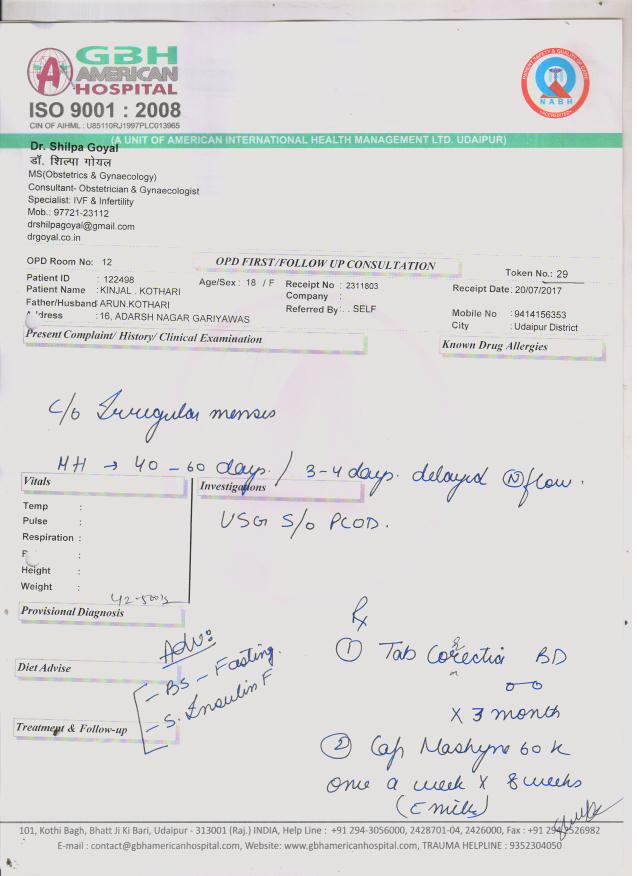 GBH
AMERICAN
HOSPITAL
ISO 9001 : 2008
CIN OF AIHML : U85110RJ1997PLC013965
NABH
(A UNIT OF AMERICAN INTERNATIONAL HEALTH MANAGEMENT LTD. UDAIPUR)
Dr. Shilpa Goyal
डॉ. शिल्पा गोयल
MS(Obstetrics & Gynaecology)
Consultant- Obstetrician & Gynaecologist
Specialist: IVF & Infertility
Mob.: 97721-23112
drshilpagoyal@gmail.com
drgoyal.co.in
OPD Room No: 12
OPD FIRST/FOLLOW UP CONSULTATION
Token No.: 29
Patient ID : 122498 Age/Sex : 18 / F Receipt No : 2311803 Receipt Date: 20/07/2017
Patient Name : KINJAL . KOTHARI Company :
Father/Husband ARUN.KOTHARI Referred By : . . SELF Mobile No : 9414156353
Address : 16, ADARSH NAGAR GARIYAWAS City : Udaipur District
Present Complaint/ History/ Clinical Examination
Known Drug Allergies
C/o Irregular menses
MH → 40 - 60 days / 3-4 days. delayed N flow.
Vitals
Investigations
Temp :
USG S/o PCOD.
Pulse :
Respiration :
:
Height :
Weight :
Provisional Diagnosis
Rx
Adv:
1 Tab BD
Diet Advise
- BS - Fasting.
- S. Insulin F
x 3 month
Treatment & Follow-up
2 Cap 60 K
once a week x 8 weeks
(c milk)
101, Kothi Bagh, Bhatt Ji Ki Bari, Udaipur - 313001 (Raj.) INDIA, Help Line : +91 294-3056000, 2428701-04, 2426000, Fax : +91 294 2526982
E-mail : contact@gbhamericanhospital.com, Website: www.gbhamericanhospital.com, TRAUMA HELPLINE : 9352304050